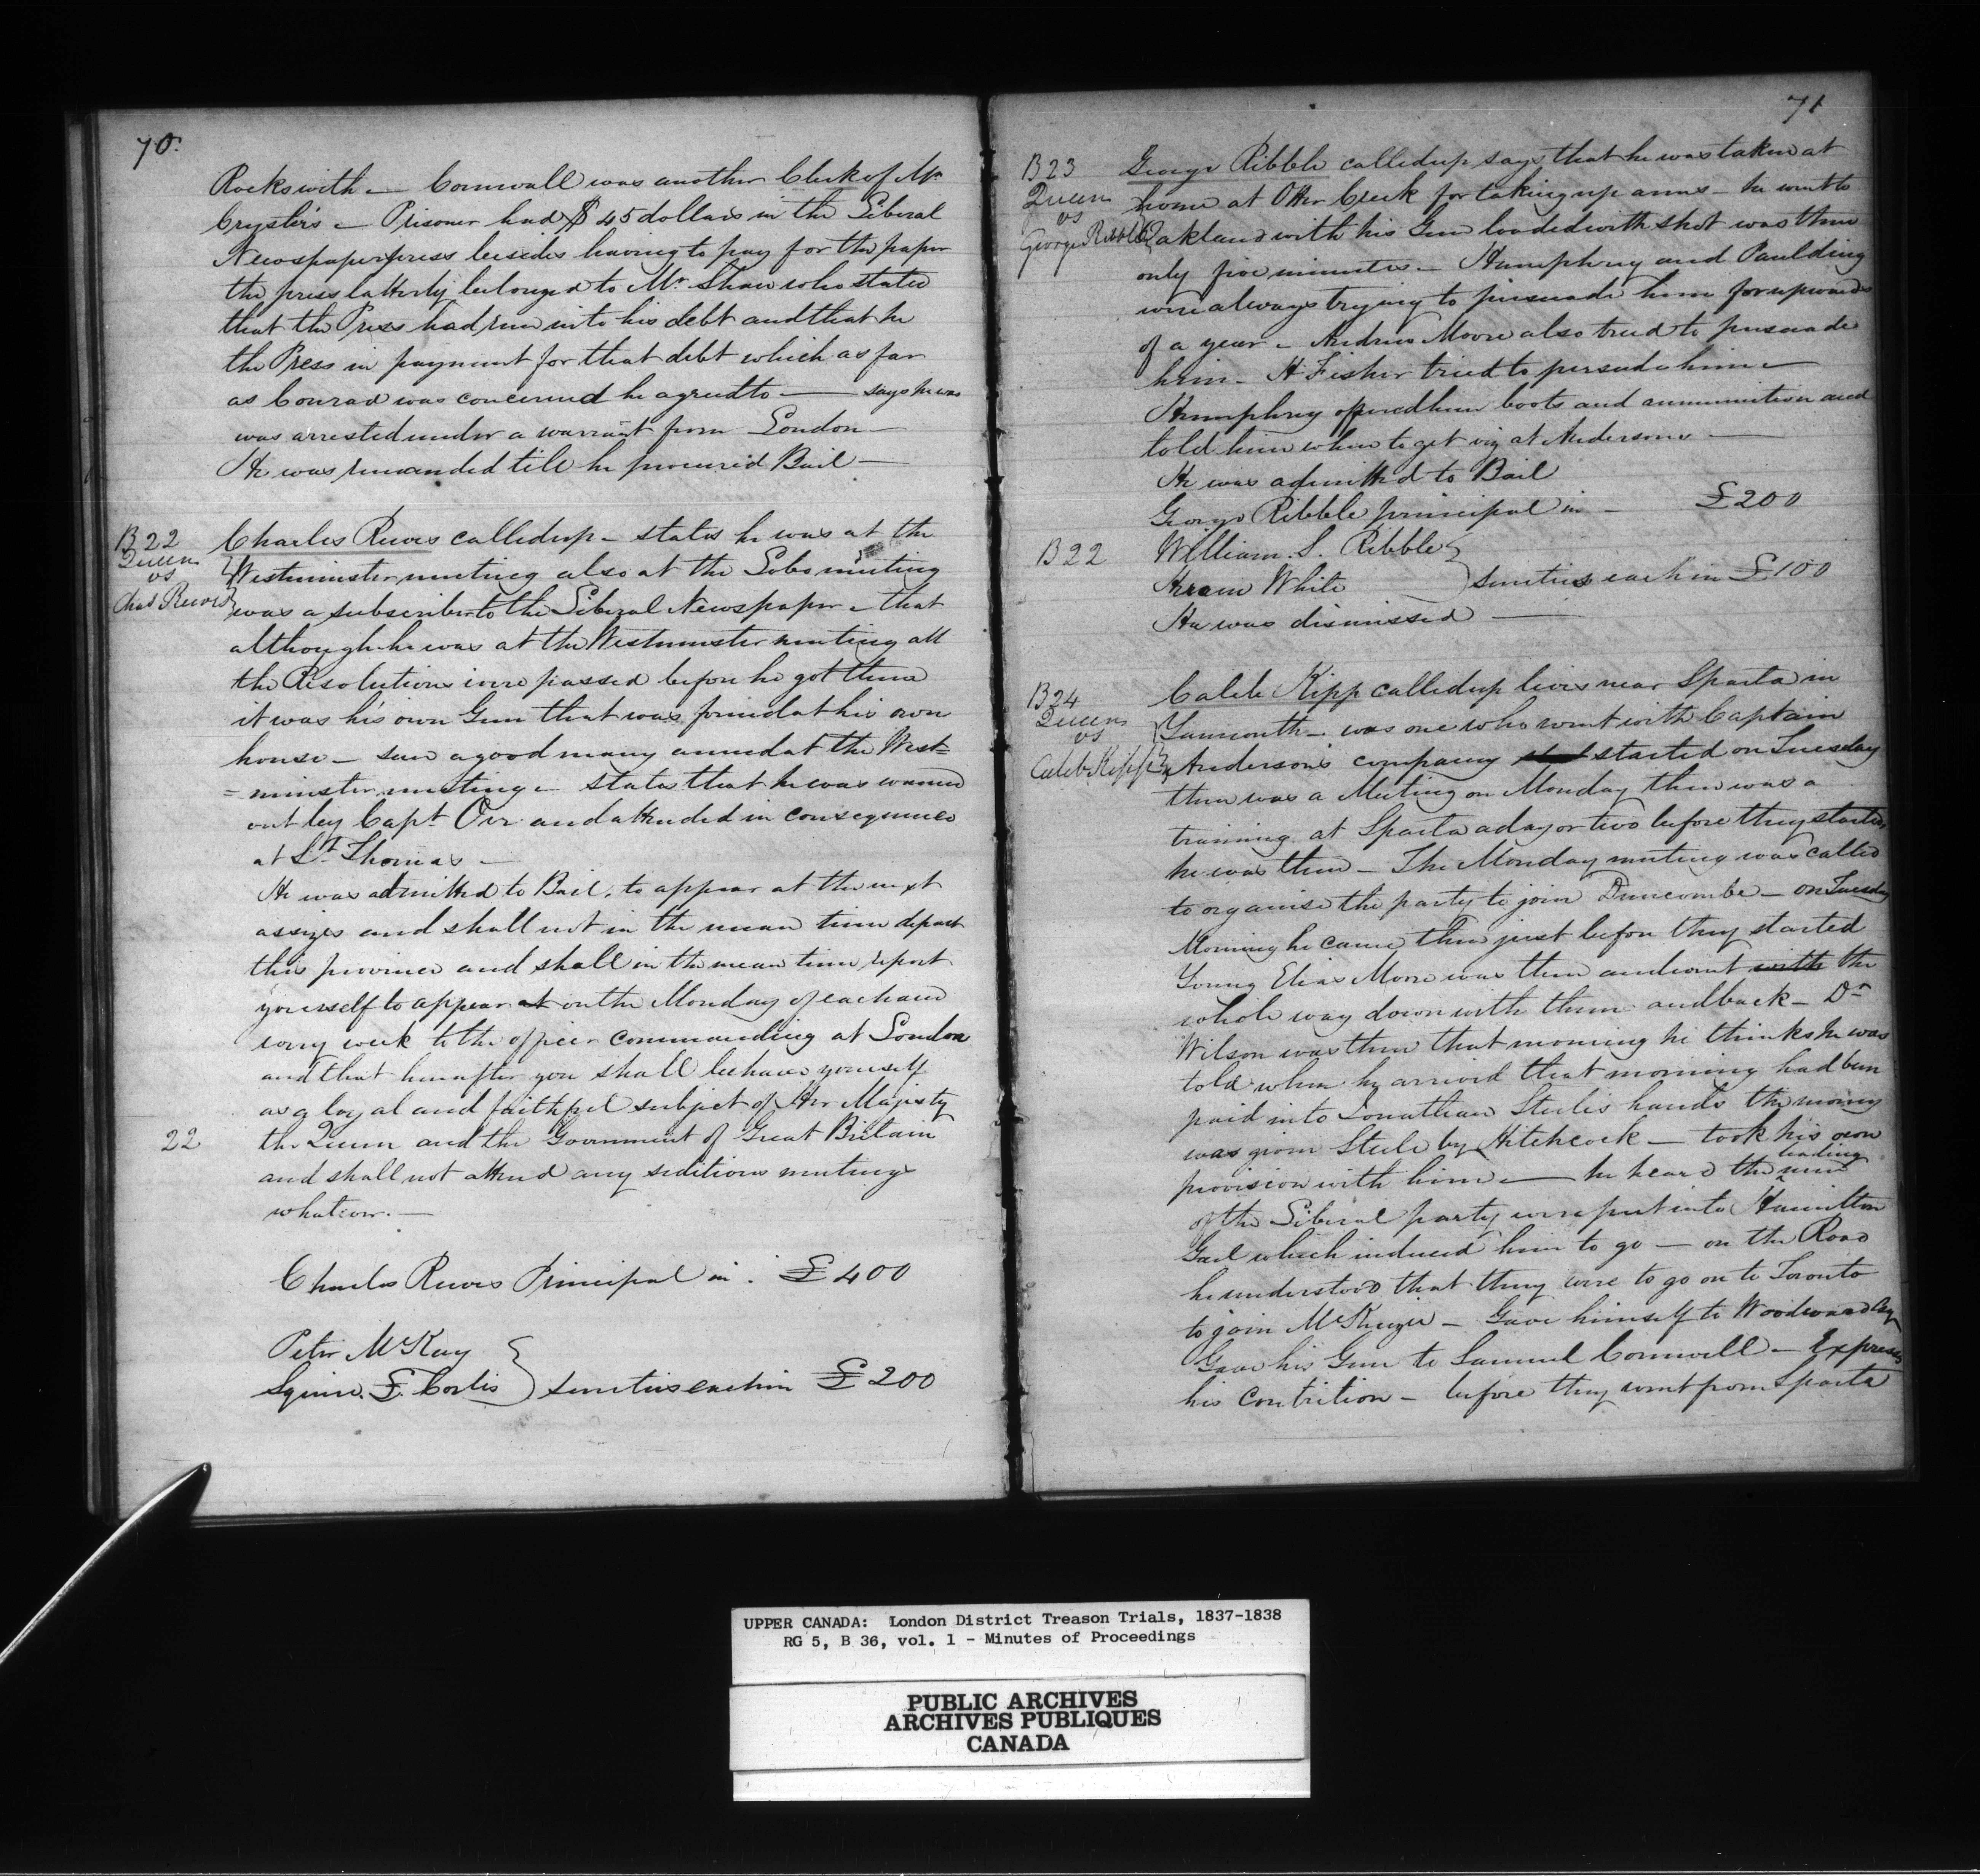 70.
Rockswith — Cornwall was another Clerk of Mr
Cryslers — Prisoner had $ 45 dollars in the Liberal
Newspaper press besides having to pay for the paper
the press latterly belonged to Mr. Shaw who stated
that the Press had run into his debt and that he
the Press in payment for that debt which as far
as Conrad was concerned he agreed to — says he was
was arrested under a warrant from London —
He was remanded till he procured Bail —
B 22
Queen
vs
Chas Reeves
Charles Reeves called up — states he was at the
Westminster meeting also at the Lobo meeting
was a subscriber to the Liberal Newspaper — that
although he was at the Westminster meeting all
the Resolutions were passed before he got there
it was his own Gun that was found at his own
house — saw a good many armed at the West=
=minster meeting — states that he was warned
out by Capt. Orr and attended in consequence
at St. Thomas —
He was admitted to Bail, to appear at the next
assizes and shall not in the mean time depart
this province and shall in the mean time report
yourself to appear at on the Monday of each and
every week to the officer commanding at London
and that hereafter you shall behave yourself
as a loyal and faithful subject of Her Majesty
22
the Queen and the Government of Great Britain
and shall not attend any seditious meetings
whatever. —
Charles Reeves Principal in . £ 400
Peter McKay
Squire. F. Corlis } sureties each in £ 200
71
B 23
Queen
vs
George Ribble
George Ribble called up says that he was taken at
home at Otter Creek for taking up arms — he went to
Oakland with his Gun loaded with shot was there
only five minutes — Humphrey and Paulding
were always trying to persuade him for upwards
of a year — Andrew Moore also tried to persuade
him — H Fisher tried to persuade him —
Humphrey offered him boots and ammunition and
told him where to get viz at Andersons —
He was admitted to Bail
George Ribble principal in — £ 200
B 22
William. S. Ribble
Hiram White } sureties each in £ 100
He was dismissed —
B 24
Queen
vs
Caleb Kipp
Caleb Kipp called up lives near Sparta in
Yarmouth — was one who went with Captain
Anderson's company started on Tuesday
there was a Meeting on Monday there was a
training at Sparta a day or two before they started
he was there — The Monday meeting was called
to organise the party to join Duncombe — on Tuesday
Morning he came there just before they started
Young Elias Moore was there and went with the
whole way down with them and back — Dr
Wilson was there that morning he thinks he was
told when he arrived that morning had been
paid into Jonathan Steeles hands the money
was given Steele by Hitchcock — took his own
provision with him — he heard the leading men
of the Liberal party were put into Hamilton
Gaol which induced him to go — on the Road
he understood that they were to go on to Toronto
to join McKenzie — Gave himself to Woodward Esq
Gave his Gun to Samuel Cornwell — Express
his Contrition — before they went from Sparta
UPPER CANADA: London District Treason Trials, 1837-1838
RG 5, B 36, vol. 1 - Minutes of Proceedings
PUBLIC ARCHIVES
ARCHIVES PUBLIQUES
CANADA